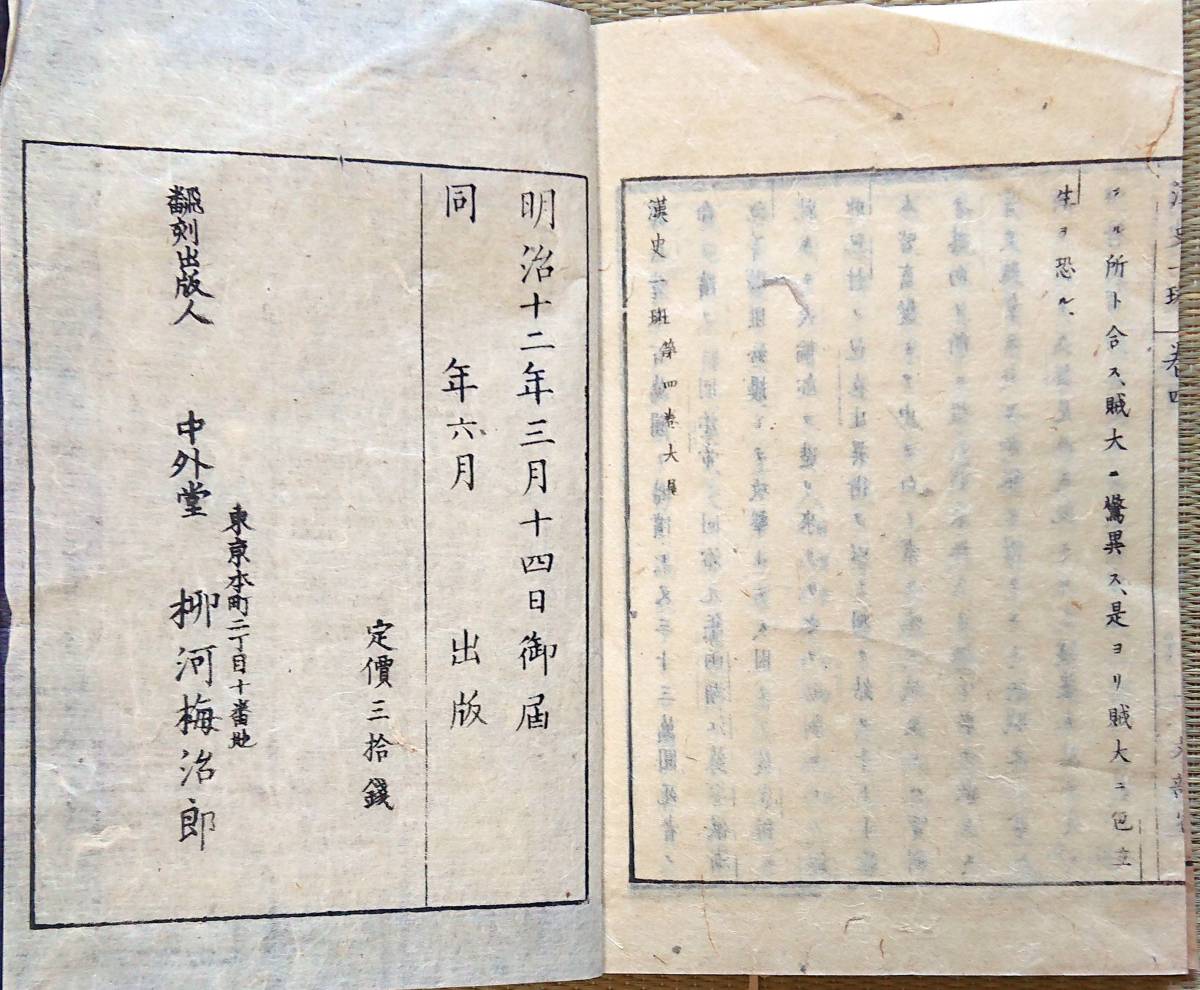 所ト合ス、賊大ニ驚異ス、是ヨリ賊大ニ色立
生ヲ恐ル、
漢史一斑第四巻大尾
漢史一斑 巻四
明治十二年三月十四日御届
同 年六月 出版
定價三拾錢
東京本町二丁目十番地
翻刻出版人 中外堂 柳河梅治郎